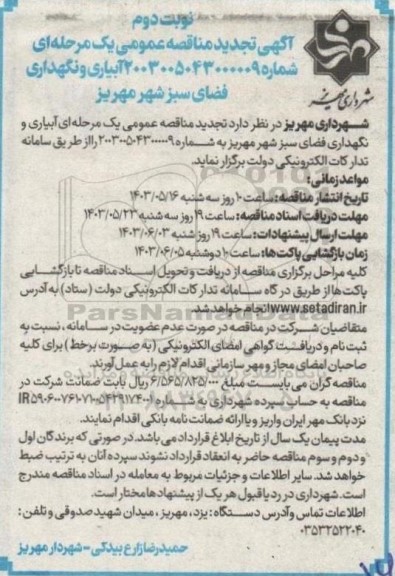 نوبت دوم
آگهی تجدید مناقصه عمومی یک مرحله‌ای
شماره ۲۰۰۳۰۰۵۰۴۳۰۰۰۰۰۹ آبیاری و نگهداری
فضای سبز شهر مهریز
شهرداری مهریز
شهرداری مهریز در نظر دارد تجدید مناقصه عمومی یک مرحله‌ای آبیاری و
نگهداری فضای سبز شهر مهریز به شماره ۲۰۰۳۰۰۵۰۴۳۰۰۰۰۰۹ را از طریق سامانه
تدارکات الکترونیکی دولت برگزار نماید.
مواعد زمانی:
تاریخ انتشار مناقصه: ساعت ۱۰ روز سه شنبه ۱۴۰۳/۰۵/۱۶
مهلت دریافت اسناد مناقصه: ساعت ۱۹ روز سه شنبه ۱۴۰۳/۰۵/۲۳
مهلت ارسال پیشنهادات: ساعت ۱۹ روز شنبه ۱۴۰۳/۰۶/۰۳
زمان بازگشایی پاکت‌ها: ساعت ۱۰ دوشنبه ۱۴۰۳/۰۶/۰۵
کلیه مراحل برگزاری مناقصه از دریافت و تحویل اسناد مناقصه تا بازگشایی
پاکت‌ها از طریق درگاه سامانه تدارکات الکترونیکی دولت (ستاد) به آدرس
www.setadiran.ir انجام خواهد شد.
متقاضیان شرکت در مناقصه در صورت عدم عضویت در سامانه، نسبت به
ثبت نام و دریافت گواهی امضای الکترونیکی (به صورت برخط) برای کلیه
صاحبان امضای مجاز و مهر سازمانی اقدام لازم را به عمل آورند.
مناقصه گران می بایست مبلغ ۶/۵۶۵/۸۲۵/۰۰۰ ریال بابت ضمانت شرکت در
مناقصه به حساب سپرده شهرداری به شماره
نزد بانک مهر ایران واریز و یا ارائه ضمانت نامه بانکی اقدام نمایند.
مدت پیمان یک سال از تاریخ ابلاغ قرارداد می باشد. در صورتی که برندگان اول
و دوم و سوم مناقصه حاضر به انعقاد قرارداد نشوند سپرده آنان به ترتیب ضبط
خواهد شد. سایر اطلاعات و جزئیات مربوط به معامله در اسناد مناقصه مندرج
است. شهرداری در رد یا قبول هر یک از پیشنهادها مختار است.
اطلاعات تماس و آدرس دستگاه: یزد، مهریز، میدان شهید صدوقی و تلفن:
۰۳۵۳۲۵۲۲۰۴۰
حمیدرضا زارع بیدکی - شهردار مهریز
ParsNamadData